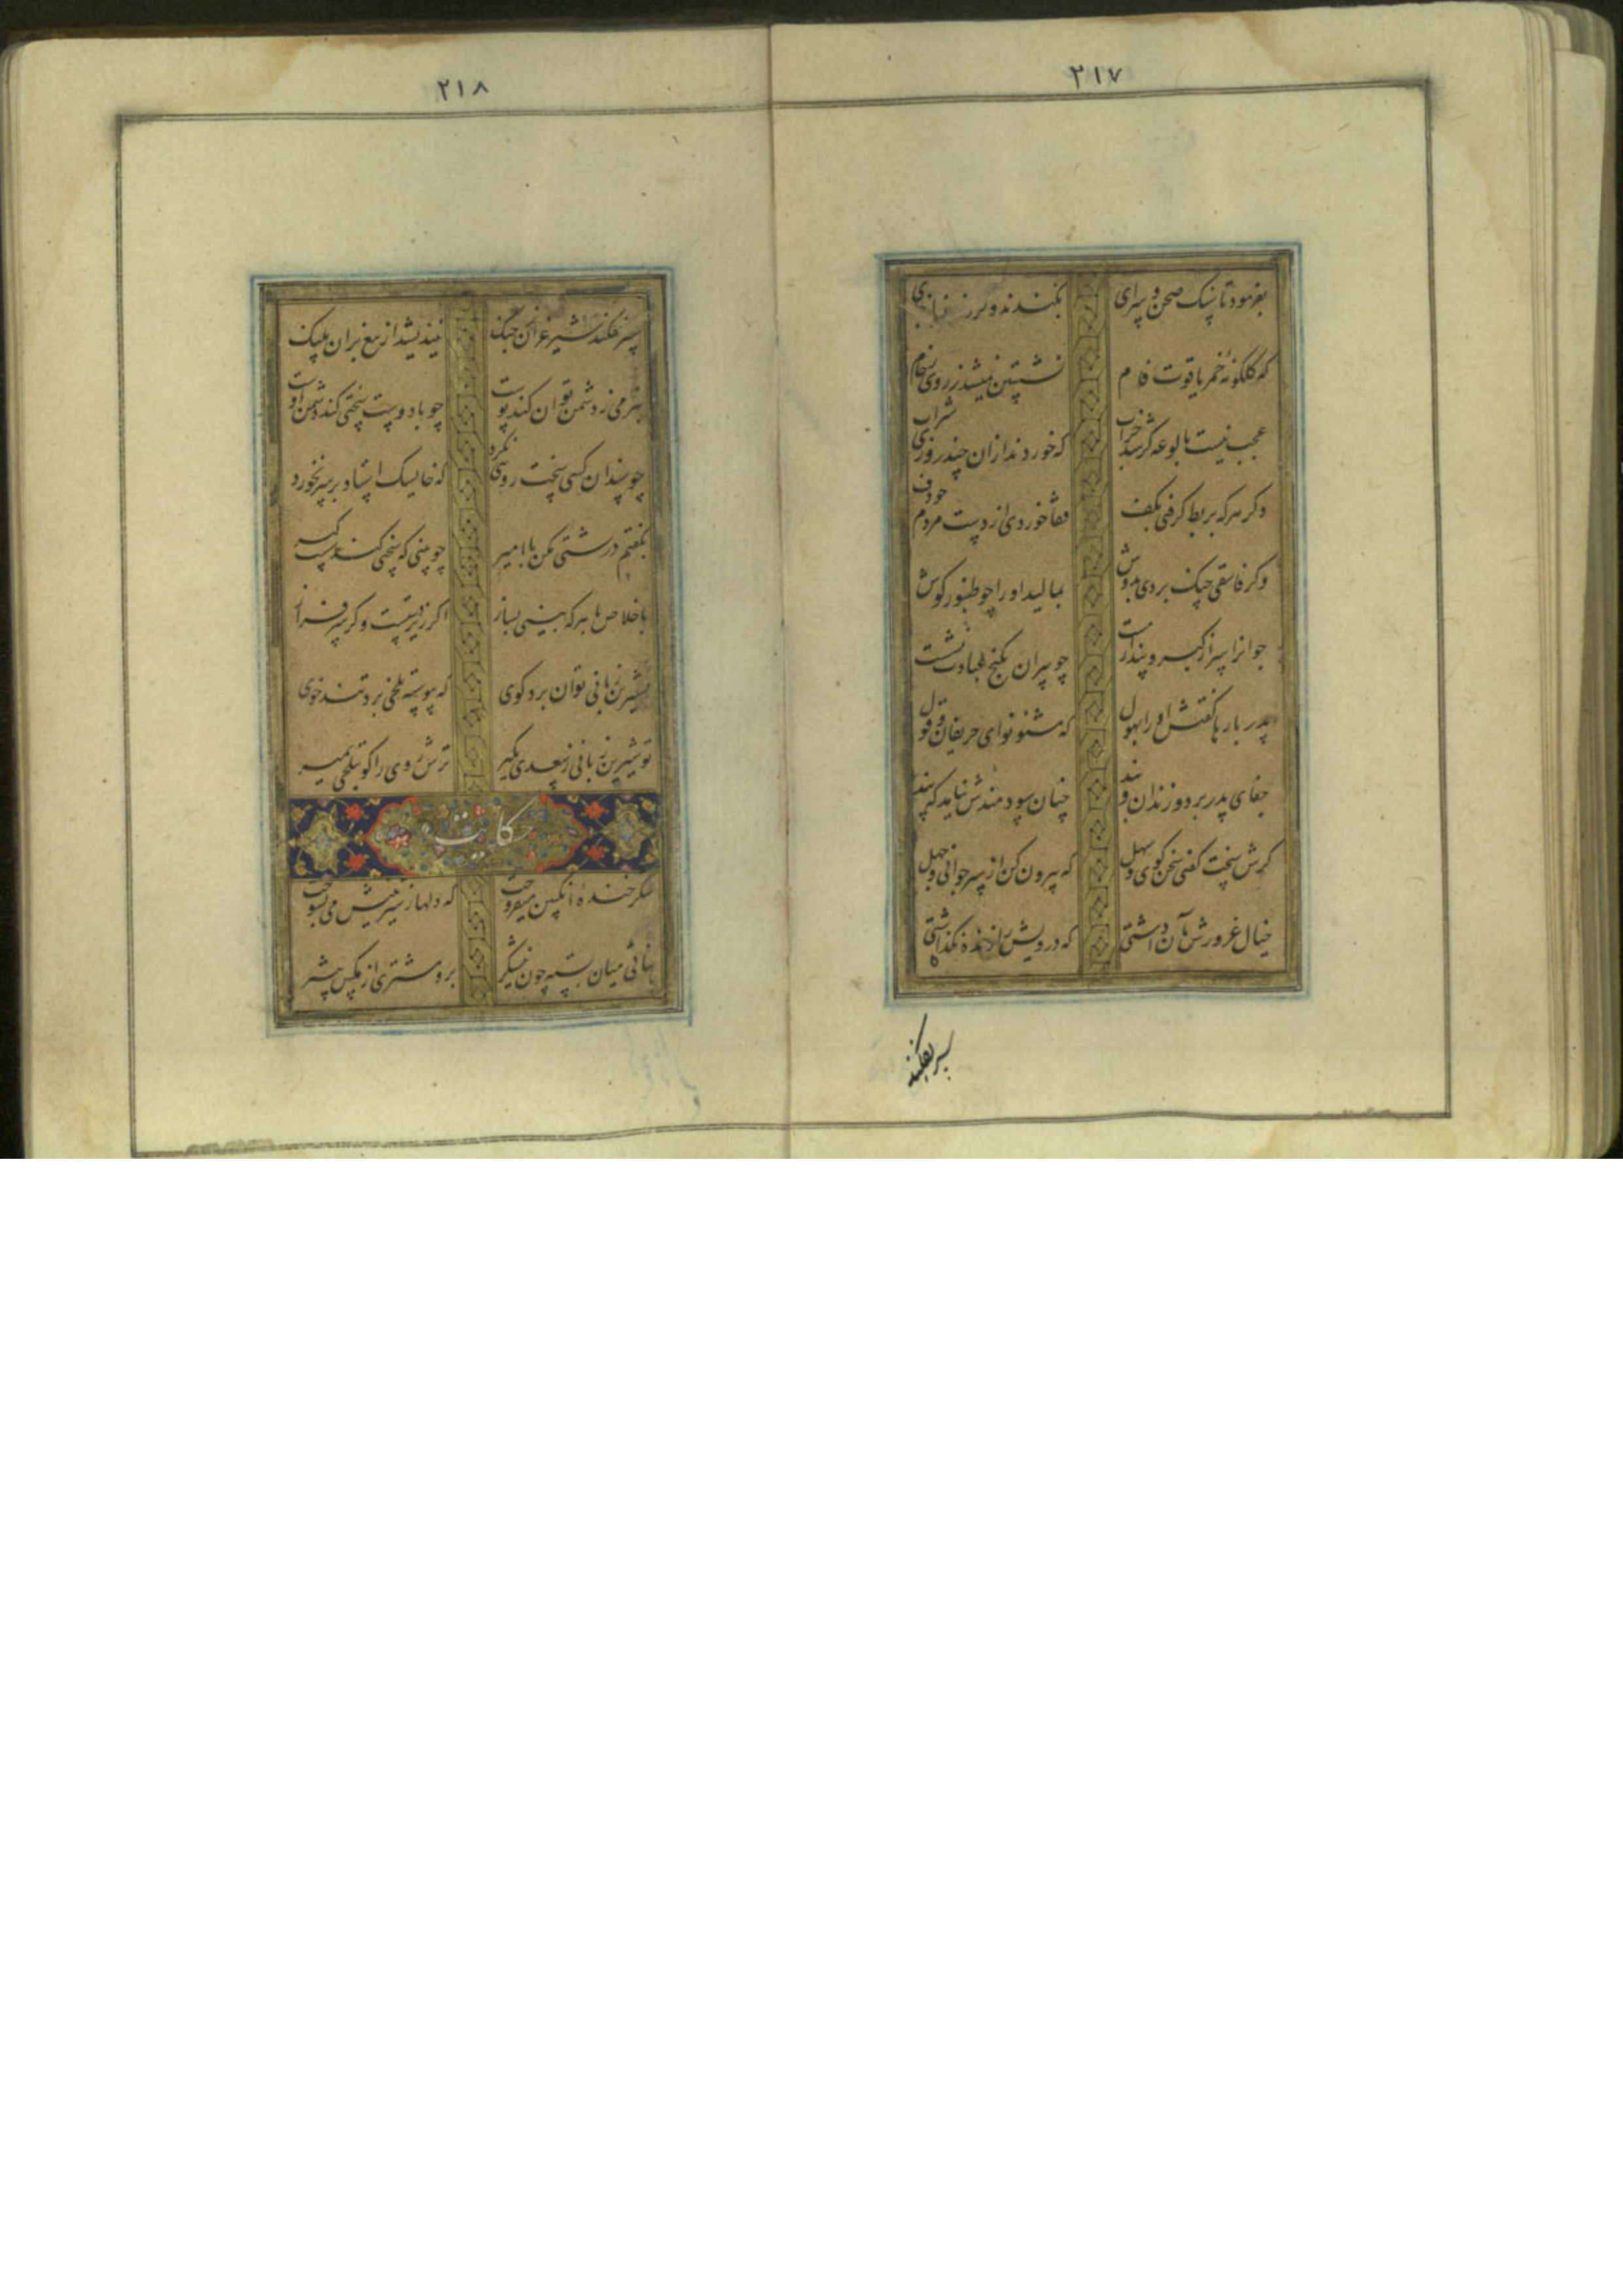 ۲۱۷
بفرمود تا سنک صحن سرای بکندند و کردند نو باز جای
که گلگونه خمر یاقوت فام نشستن نمیشد ز روی رخام
عجب نیست بالوعه گر شد خراب که خوردند ازان چند روزی شراب
دکر هرکه بربط کرفتی بکف قفا خوردی از دست مردم چو دف
وکر فاسقی چنک بردی بدوش بمالید او را چو طنبور کوش
جوانرا سر از کبر و پندار مست چو پیران بکنج عبادت نشست
پدر بارها کفتش او را بهول که مشنو نوای حریفان و قول
جفای پدر برد و زندان و بند چنان سودمندش نیامد که پند
کرش سخت کفتی سخن کوی سهل که بیرون کن از سر جوانی و جهل
خیال غرورش بر آن داشتی که درویش را زنده نکذاشتی
سپر نفکند
۲۱۸
سپر نفکند شیر غران ز جنک نیندیشد از تیغ بران پلنک
بنرمی ز دشمن توان کند پوست چو با دوست سختی کنی دشمن اوست
چو سندان کسی سخت رویی نکرد که خایسک استاد بر سر نخورد
بکفتم درشتی مکن با امیر چو بینی که سختی کند سست کیر
باخلاص با هرکه بینی بساز اکر زیردستست و کر سرفراز
بشیرین زبانی توان برد کوی که پیوسته تلخی برد تند خوی
تو شیرین زبانی ز سعدی بکیر ترش روی را کو بتلخی بمیر
حکایت
شکر خنده انکبین میفروخت که دلها ز شیرینیش می بسوخت
نباتی میان بسته چون نیشکر برو مشتری از مکس بیشتر